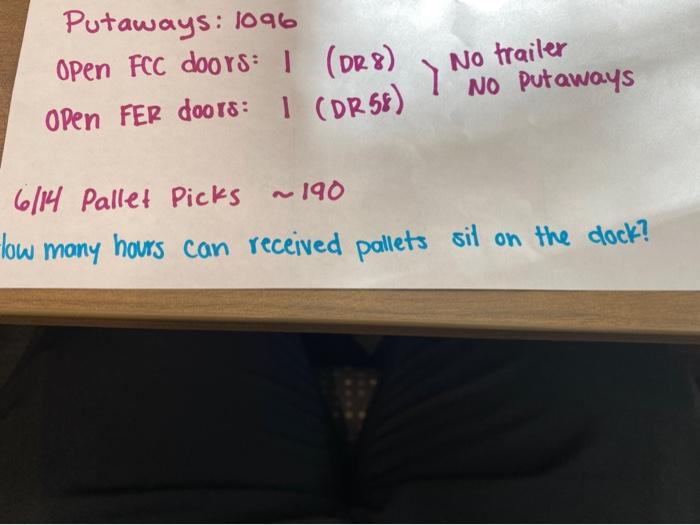 Putaways: 1096
Open FCC doors: 1 (DR 8) } No trailer
No Putaways
Open FER doors: 1 (DR 58)
6/14 Pallet Picks ~190
How many hours can received pallets sit on the dock?